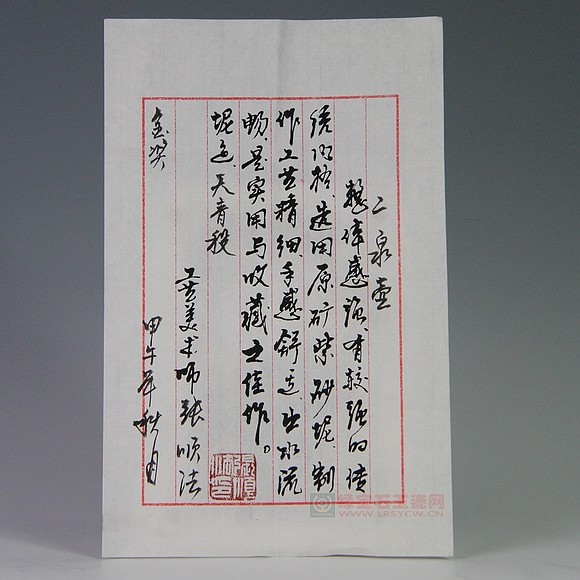 二泉壶
整体感强、有较强的传
统风格、选用原矿紫砂泥、制
作工艺精细、手感舒适、出水流
畅、是实用与收藏之佳作。
泥色、天青段
工艺美术师张顺法
甲午年秋月
绿宝石玉瓷网
WWW.LBSYCW.CN